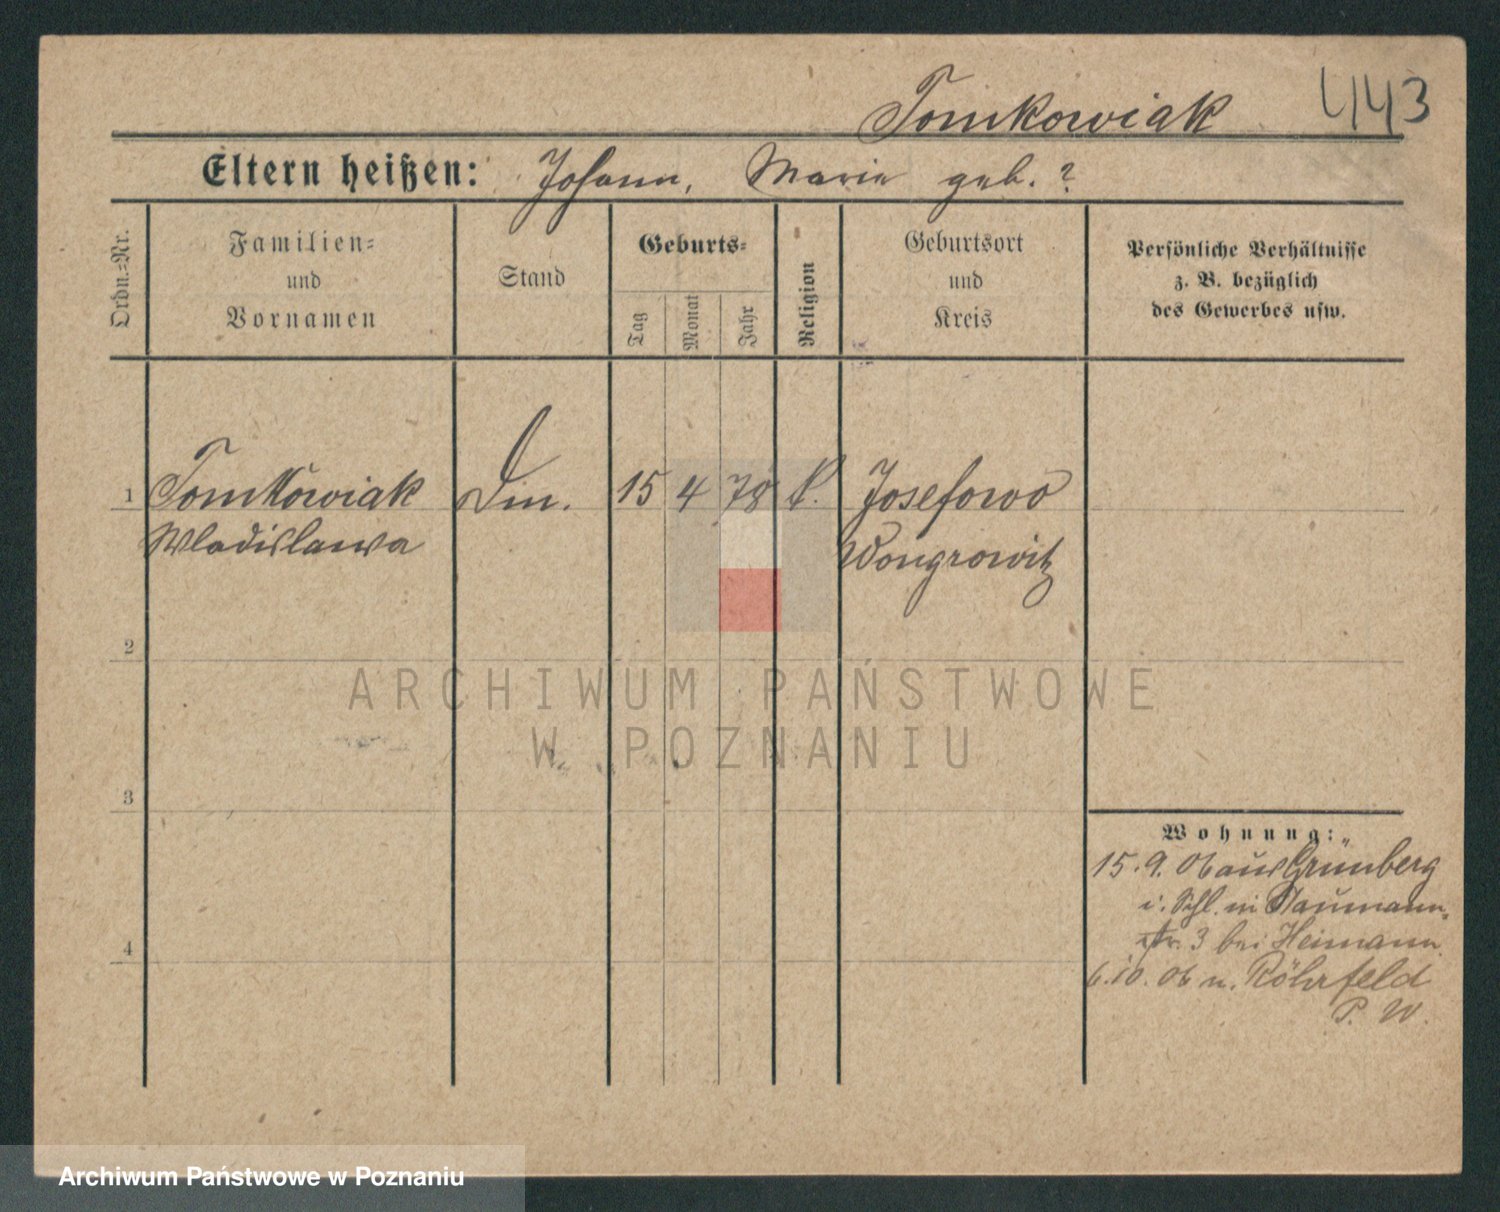 Tomkowiak 443
Eltern heißen: Johann, Marie geb. ?
Ordn.-Nr.
Familien-
und
Vornamen
Stand
Geburts-
Tag
Monat
Jahr
Religion
Geburtsort
und
Kreis
Persönliche Verhältnisse
z. B. bezüglich
des Gewerbes usw.
1 Tomkowiak Din. 15 4 78 k. Josefowo
Wladislawa Wongrowitz
2
ARCHIWUM PAŃSTWOWE
W POZNANIU
3
Wohnung:
15. 9. 06 aus Grünberg
i. Schl. in Naumann-
str. 3 bei Heimann
6. 10. 06 n. Röhrfeld
P. W.
4
Archiwum Państwowe w Poznaniu